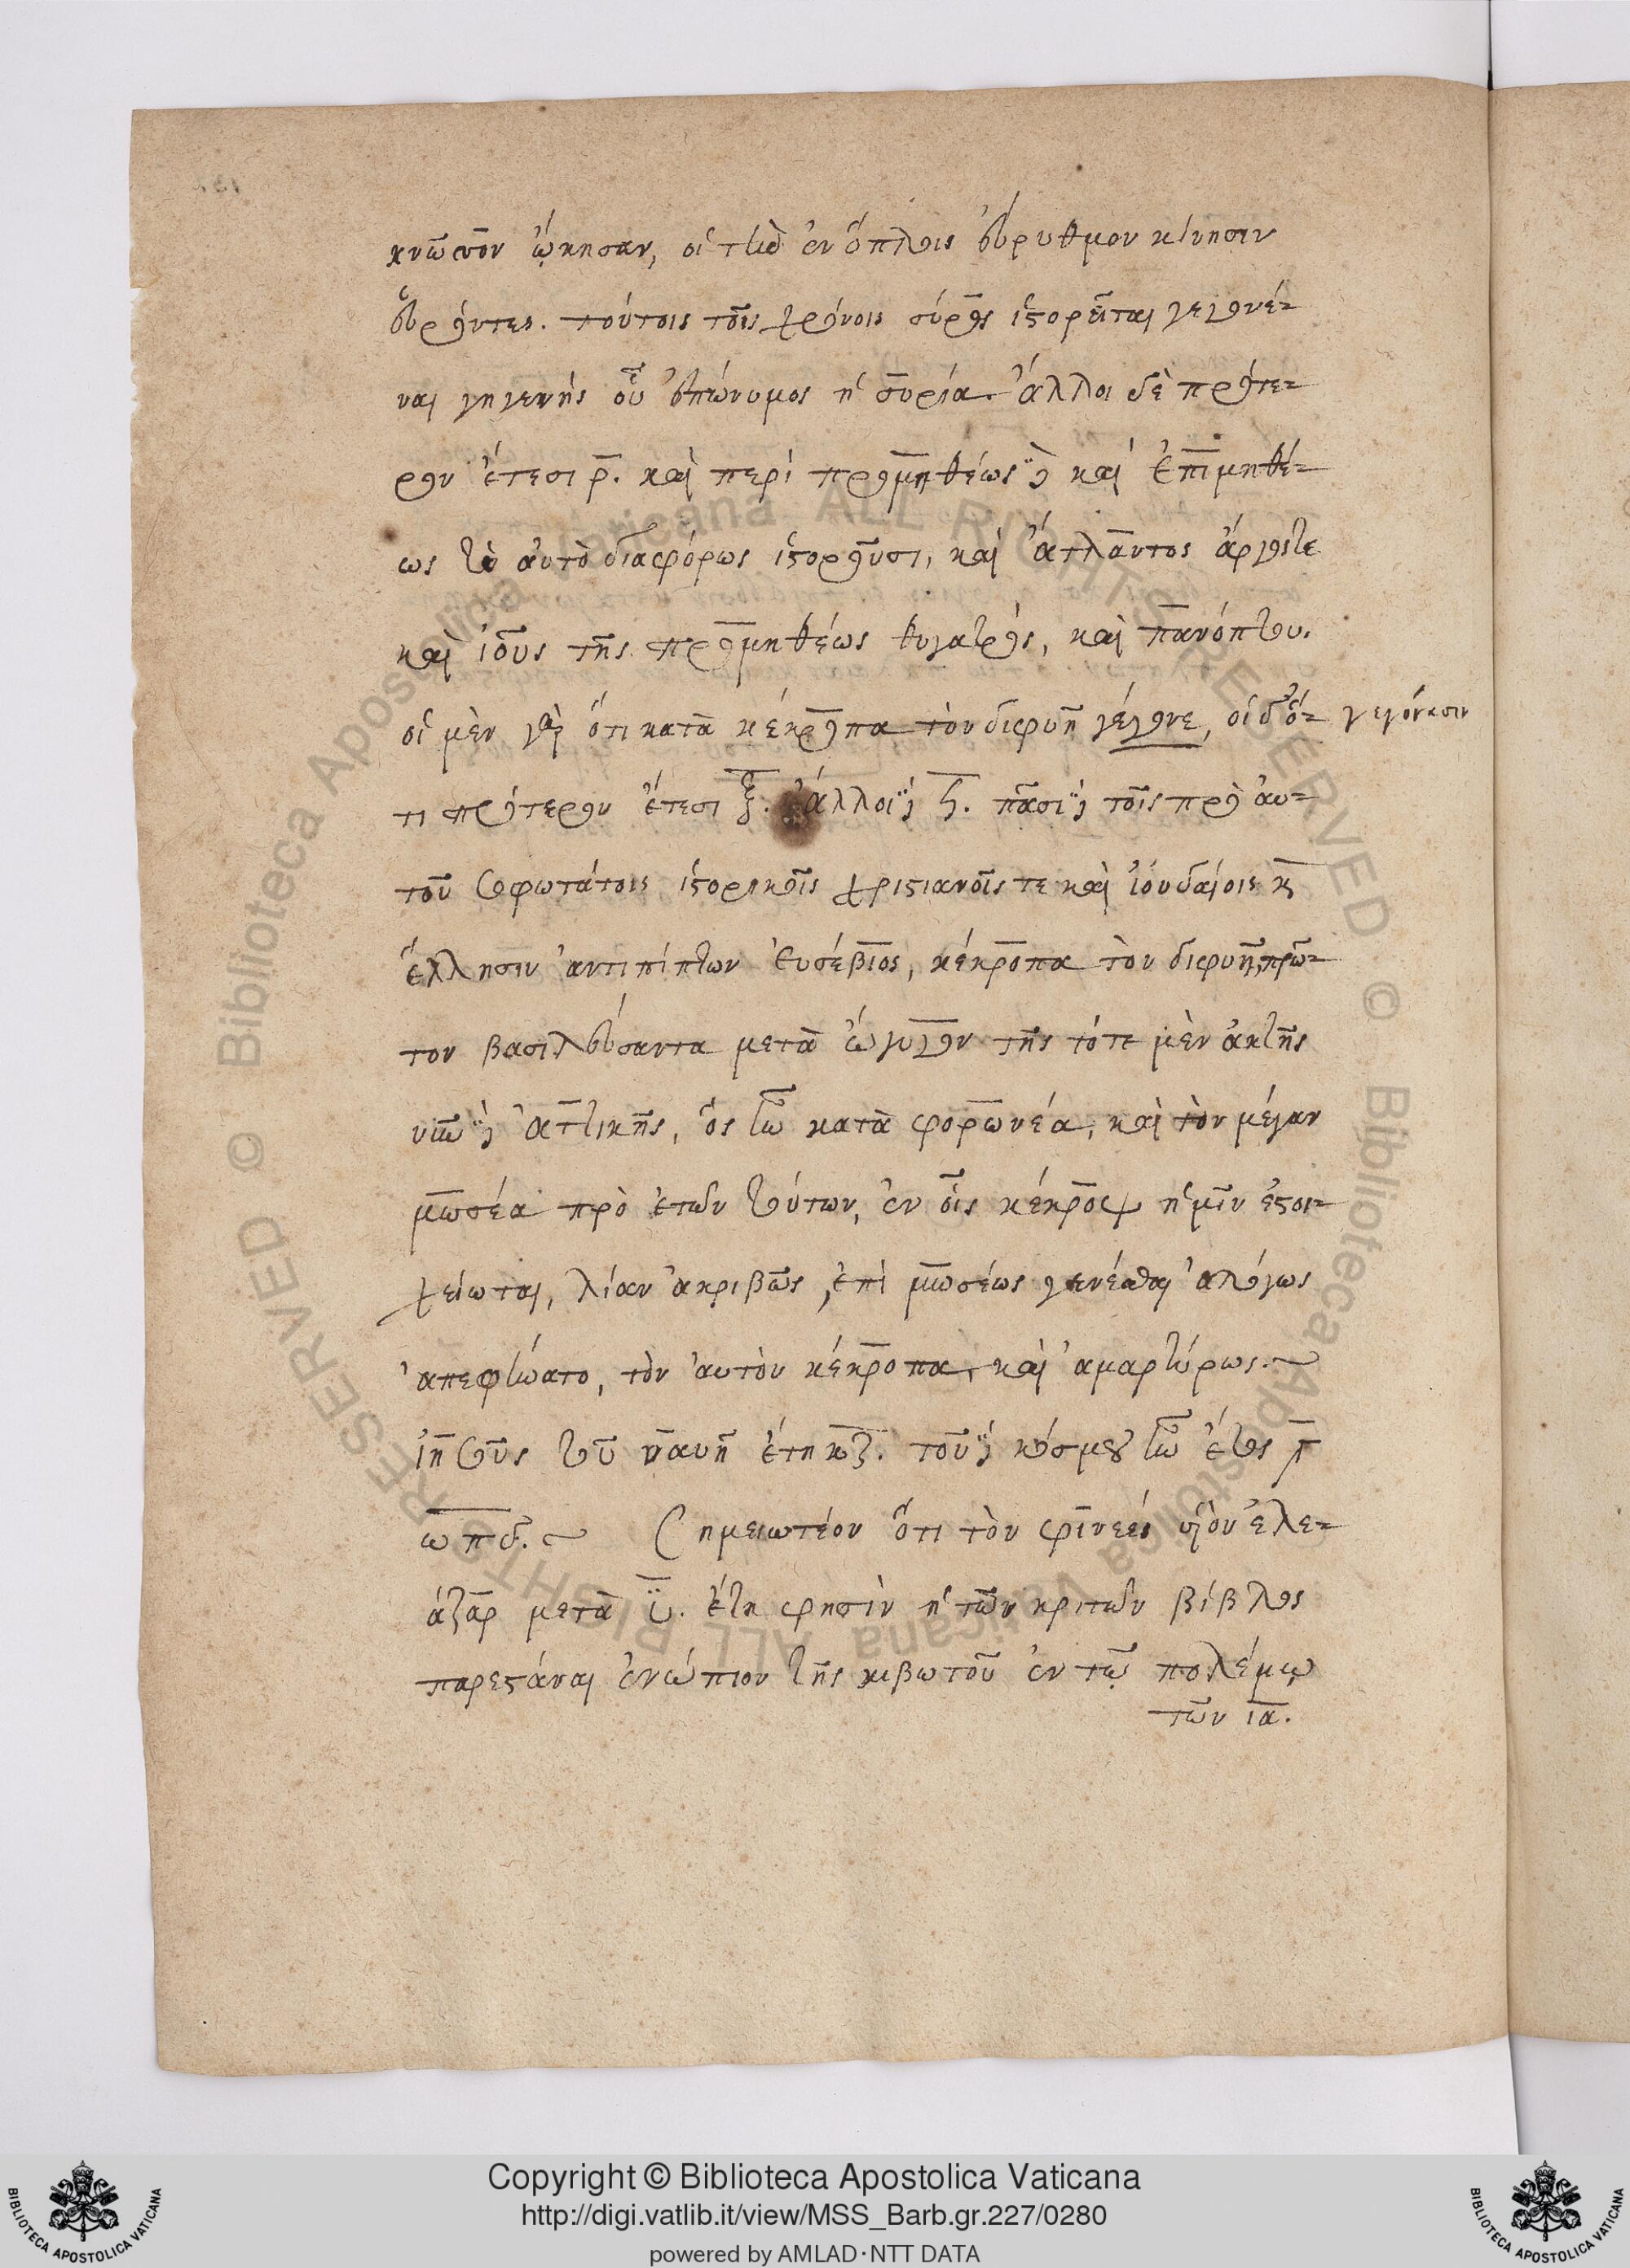 κνῶσον ᾤκησαν, οἱ τὴν ἐν ὅπλοις εὔρυθμον κίνησιν
εὑρόντες. τούτοις τοῖς χρόνοις σύρος ἱστορεῖται γεγονέ-
ναι γηγενὴς οὗ ἐπώνυμος ἡ συρία. ἄλλοι δὲ πρότε-
ρον ἔτεσι ρ̅. καὶ περὶ προμηθέως δὲ καὶ ἐπιμηθέ-
ως τὸ αὐτὸ διαφόρως ἱστοροῦσι, καὶ ἄτλαντος ἄργουτε
καὶ ἰοῦς τῆς προμηθέως θυγατρός, καὶ πανόπτου.
οἱ μὲν γὰρ ὅτι κατὰ κέκροπα τὸν διφυῆ γέγονε, οἱ δ' ὅ- γεγόνασιν
τι πρότερον ἔτεσι ξ̅. ἄλλοι δὲ ϟ̅. πᾶσι δὲ τοῖς πρὸ αυ-
τοῦ σοφωτάτοις ἱστορικοῖς χριστιανοῖς τε καὶ ἰουδαίοις κ̀
ἕλλησιν ἀντιπίπτων εὐσέβιος, κέκροπα τὸν διφυῆ, πρῶ-
τον βασιλεύσαντα μετὰ ὤγυγον τῆς τότε μὲν ἀκτῆς
νῦν δὲ ἀττικῆς, ὃς ἦν κατὰ φορωνέα, καὶ τὸν μέγαν
μωσέα πρὸ ἐτῶν τούτων, ἐν οἷς κέκροψ ἡμῖν ἐστοι-
χείωται, λίαν ἀκριβῶς, ἐπὶ μωσέως γενέσθαι ἀλόγως
ἀπεφήνατο, τὸν αὐτὸν κέκροπα, καὶ ἀμαρτύρως.
ἰησοῦς τοῦ ναυῆ ἔτη κζ̅. τοῦ δὲ κόσμου ἦν ἔτος ͵γ
ωπδ. Σημειωτέον ὅτι τὸν φινεὲς υἱὸν ἐλε-
άζαρ μετὰ υ̅. ἔτη φησὶν ἡ τῶν κριτῶν βίβλος
παρεστάναι ἐνώπιον τῆς κιβωτοῦ ἐν τῷ πολέμῳ
τῶν ια̅.
Copyright © Biblioteca Apostolica Vaticana
http://digi.vatlib.it/view/MSS_Barb.gr.227/0280
powered by AMLAD·NTT DATA
BIBLIOTECA APOSTOLICA VATICANA
BIBLIOTECA APOSTOLICA VATICANA
© Biblioteca Apostolica Vaticana ALL RIGHTS RESERVED
© Biblioteca Apostolica Vaticana ALL RIGHTS RESERVED